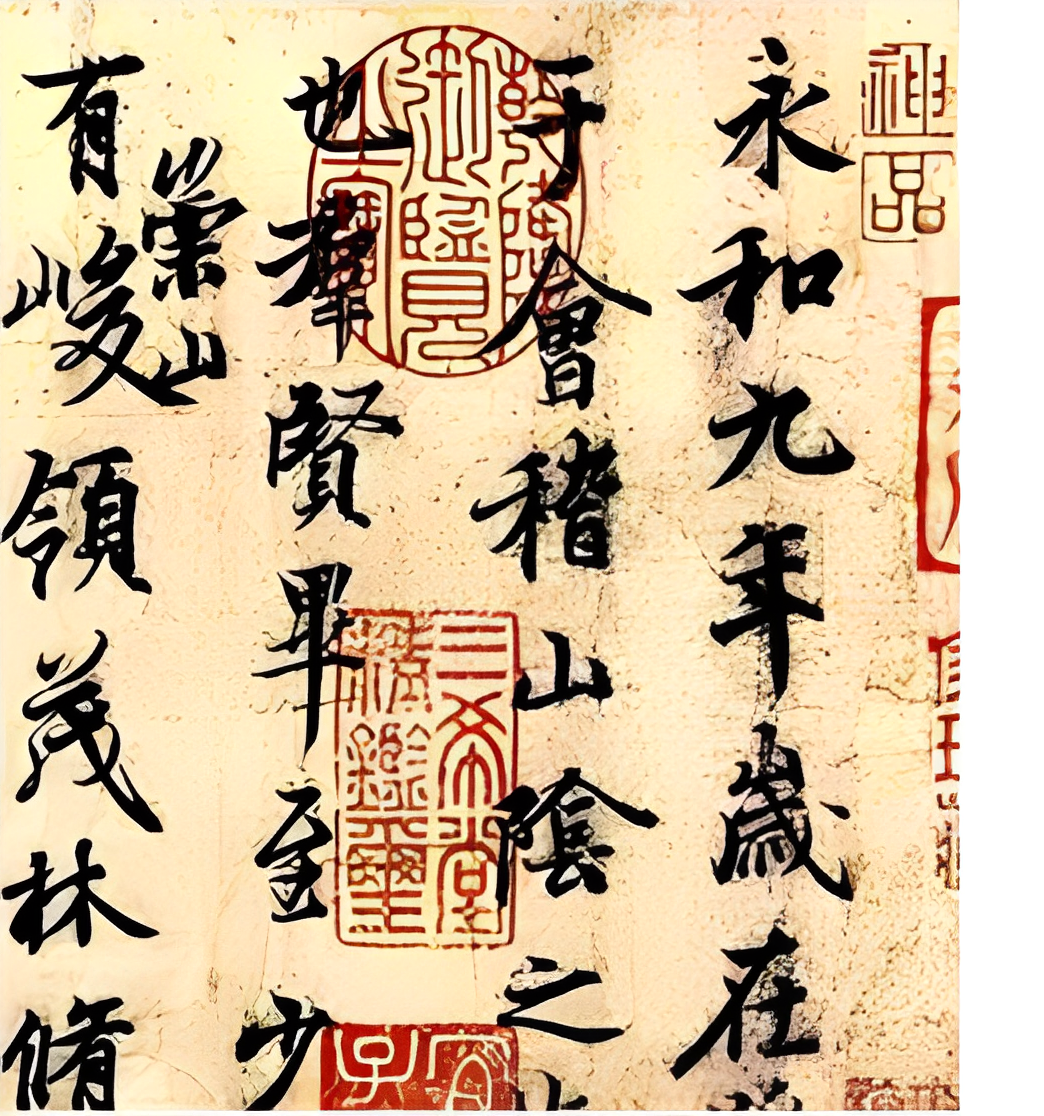 神品
永和九年歲在
于會稽山陰之
也羣賢畢至少
崇山
有峻領茂林脩
乾隆御覽之寶
三希堂精鑑璽
宜子